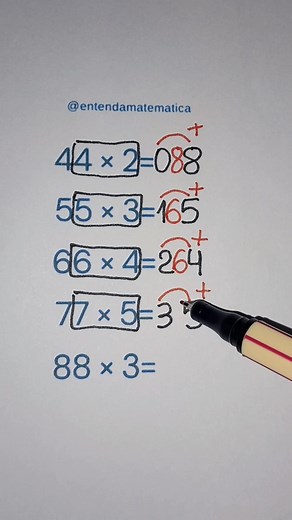 @entendamatematica
+
44 × 2=088
+
55 × 3=165
+
66 × 4=264
+
77 × 5=3 5
88 × 3=